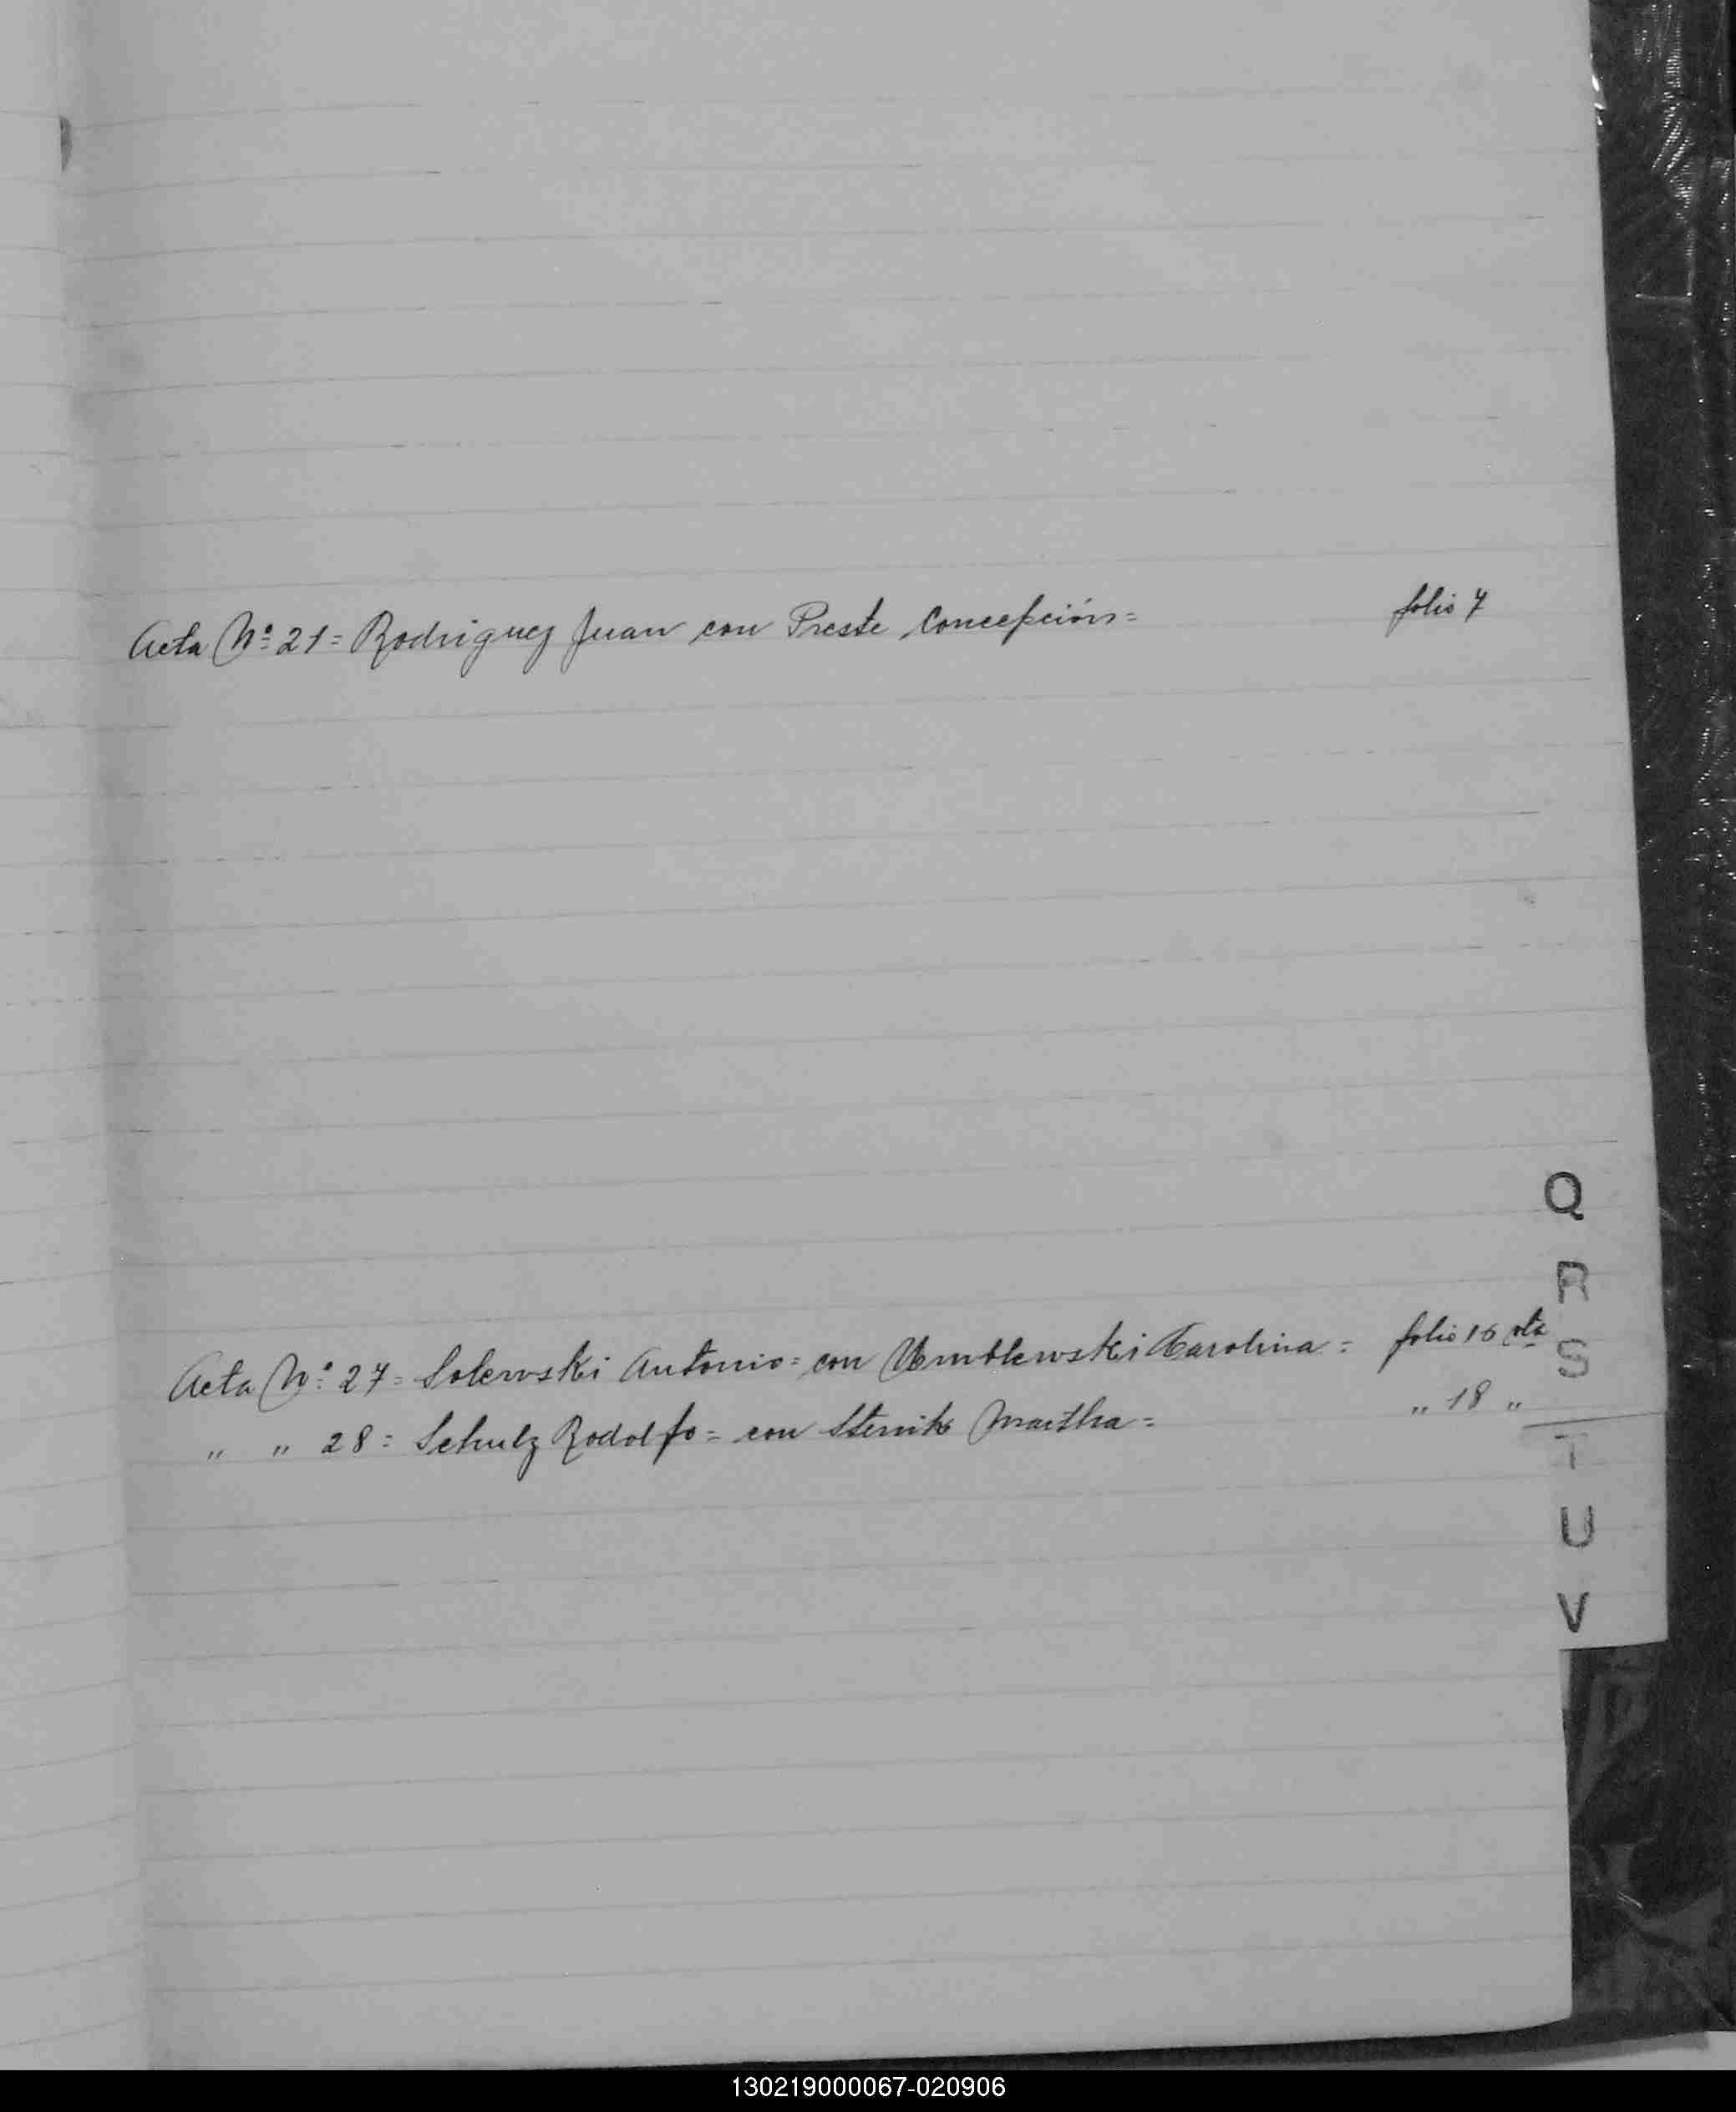 Acta Nº 21 = Rodriguez Juan con Preste Concepción = folio 7
Q
R
Acta Nº 27 = Solewski Antonio = con Umblewski Carolina = folio 16 vta
S
" " 28 = Schulz Rodolfo = con Stenik Martha = " 18 "
T
U
V
130219000067-020906